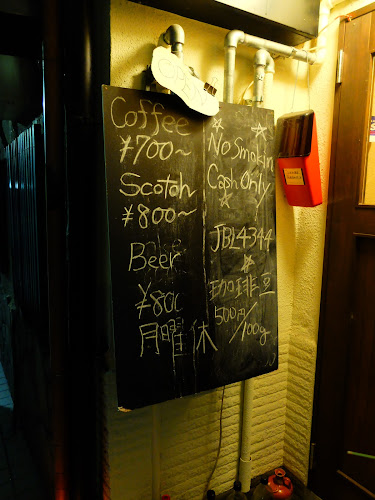 OPEN
Coffee
¥700~
Scotch
¥800~
Beer
¥800
月曜休
No Smokin
Cash Only
JBL4344
珈琲豆
500円/100g